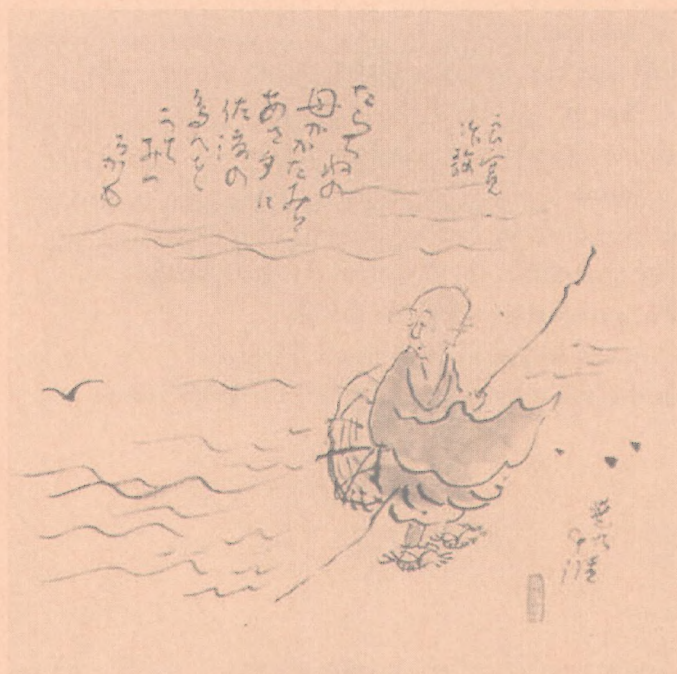 良寛
たらちねの
母がかたみと
あさ夕に
佐渡の
島へを
うちみつ
るかも